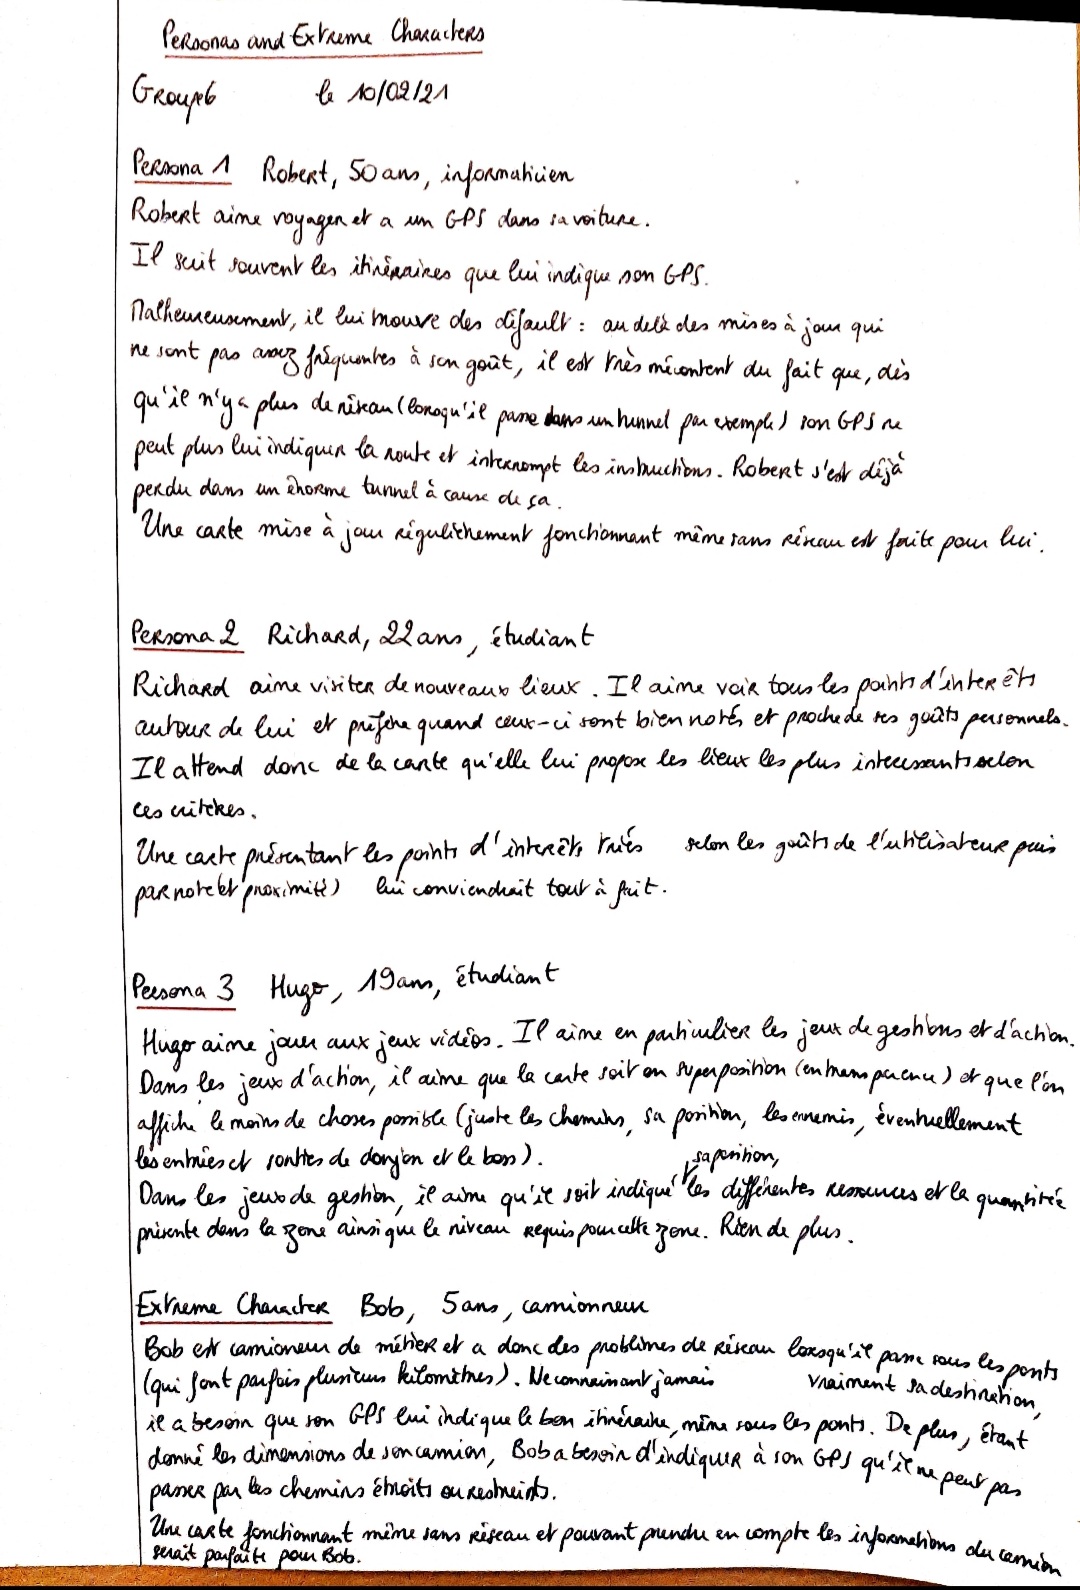 Personas and Extreme Characters
Groupe6 le 10/02/21
Persona 1 Robert, 50 ans, informaticien
Robert aime voyager et a un GPS dans sa voiture.
Il suit souvent les itinéraires que lui indique son GPS.
Malheureusement, il lui trouve des défault : au delà des mises à jour qui
ne sont pas assez fréquentes à son goût, il est très mécontent du fait que, dès
qu'il n'y a plus de réseau (lorsqu'il passe dans un tunnel par exemple) son GPS ne
peut plus lui indiquer la route et interrompt les instructions. Robert s'est déjà
perdu dans un énorme tunnel à cause de ça.
Une carte mise à jour régulièrement fonctionnant même sans réseau est faite pour lui.
Persona 2 Richard, 22 ans, étudiant
Richard aime visiter de nouveaux lieux. Il aime voir tous les points d'intérêts
autour de lui et préfère quand ceux-ci sont bien notés et proche de ses goûts personnels.
Il attend donc de la carte qu'elle lui propose les lieux les plus interessants selon
ces critères.
Une carte présentant les points d'intérêts triés selon les goûts de l'utilisateur puis
par note (et proximité) lui conviendrait tout à fait.
Persona 3 Hugo, 19 ans, étudiant
Hugo aime jouer aux jeux vidéos. Il aime en particulier les jeux de gestions et d'action.
Dans les jeux d'action, il aime que la carte soit en superposition (en transparence) et que l'on
affiche le moins de choses possible (juste les chemins, sa position, les ennemis, éventuellement
les entrées et sorties de donjon et le boss).
Dans les jeux de gestion, il aime qu'il soit indiqué sa position, les différentes ressources et la quantitée
présente dans la zone ainsi que le niveau requis pour cette zone. Rien de plus.
Extreme Character Bob, 5 ans, camionneur
Bob est camioneur de métier et a donc des problèmes de réseau lorsqu'il passe sous les ponts
(qui font parfois plusieurs kilomètres). Ne connaissant jamais vraiment sa destination,
il a besoin que son GPS lui indique le bon itinéraire, même sous les ponts. De plus, étant
donné les dimensions de son camion, Bob a besoin d'indiquer à son GPS qu'il ne peut pas
passer par les chemins étroits ou restreints.
Une carte fonctionnant même sans réseau et pouvant prendre en compte les informations du camion
serait parfaite pour Bob.